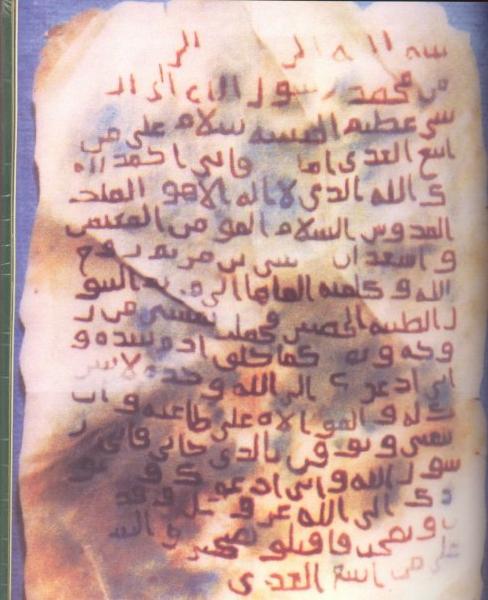 بسم الله الر الر
من محمد رسول الله الى ال
شى عظيم الحبشه سلام على من
اتبع الهدى اما فانى احمد ال
ك الله الذى لا اله الا هو الملك
القدوس السلام المومن المهيمن
و اشهد ان عيسى بن مريم روح
الله و كلمته القاها الى مريم البتو
ل الطيبه الحصينه فحملت بعيسى من ر
وحه و نفخه كما خلق ادم بيده و
انى ادعو ك الى الله وحده لا شر
ك له و الموالاه على طاعته و ان
تتبعنى و توقن بالذى جانى فانى ر
سول الله و انى ادعو ك و
د ك الى الله عز و جل و قد
و نصحت فاقبلو نصيحتى و السل
على من اتبع الهدى